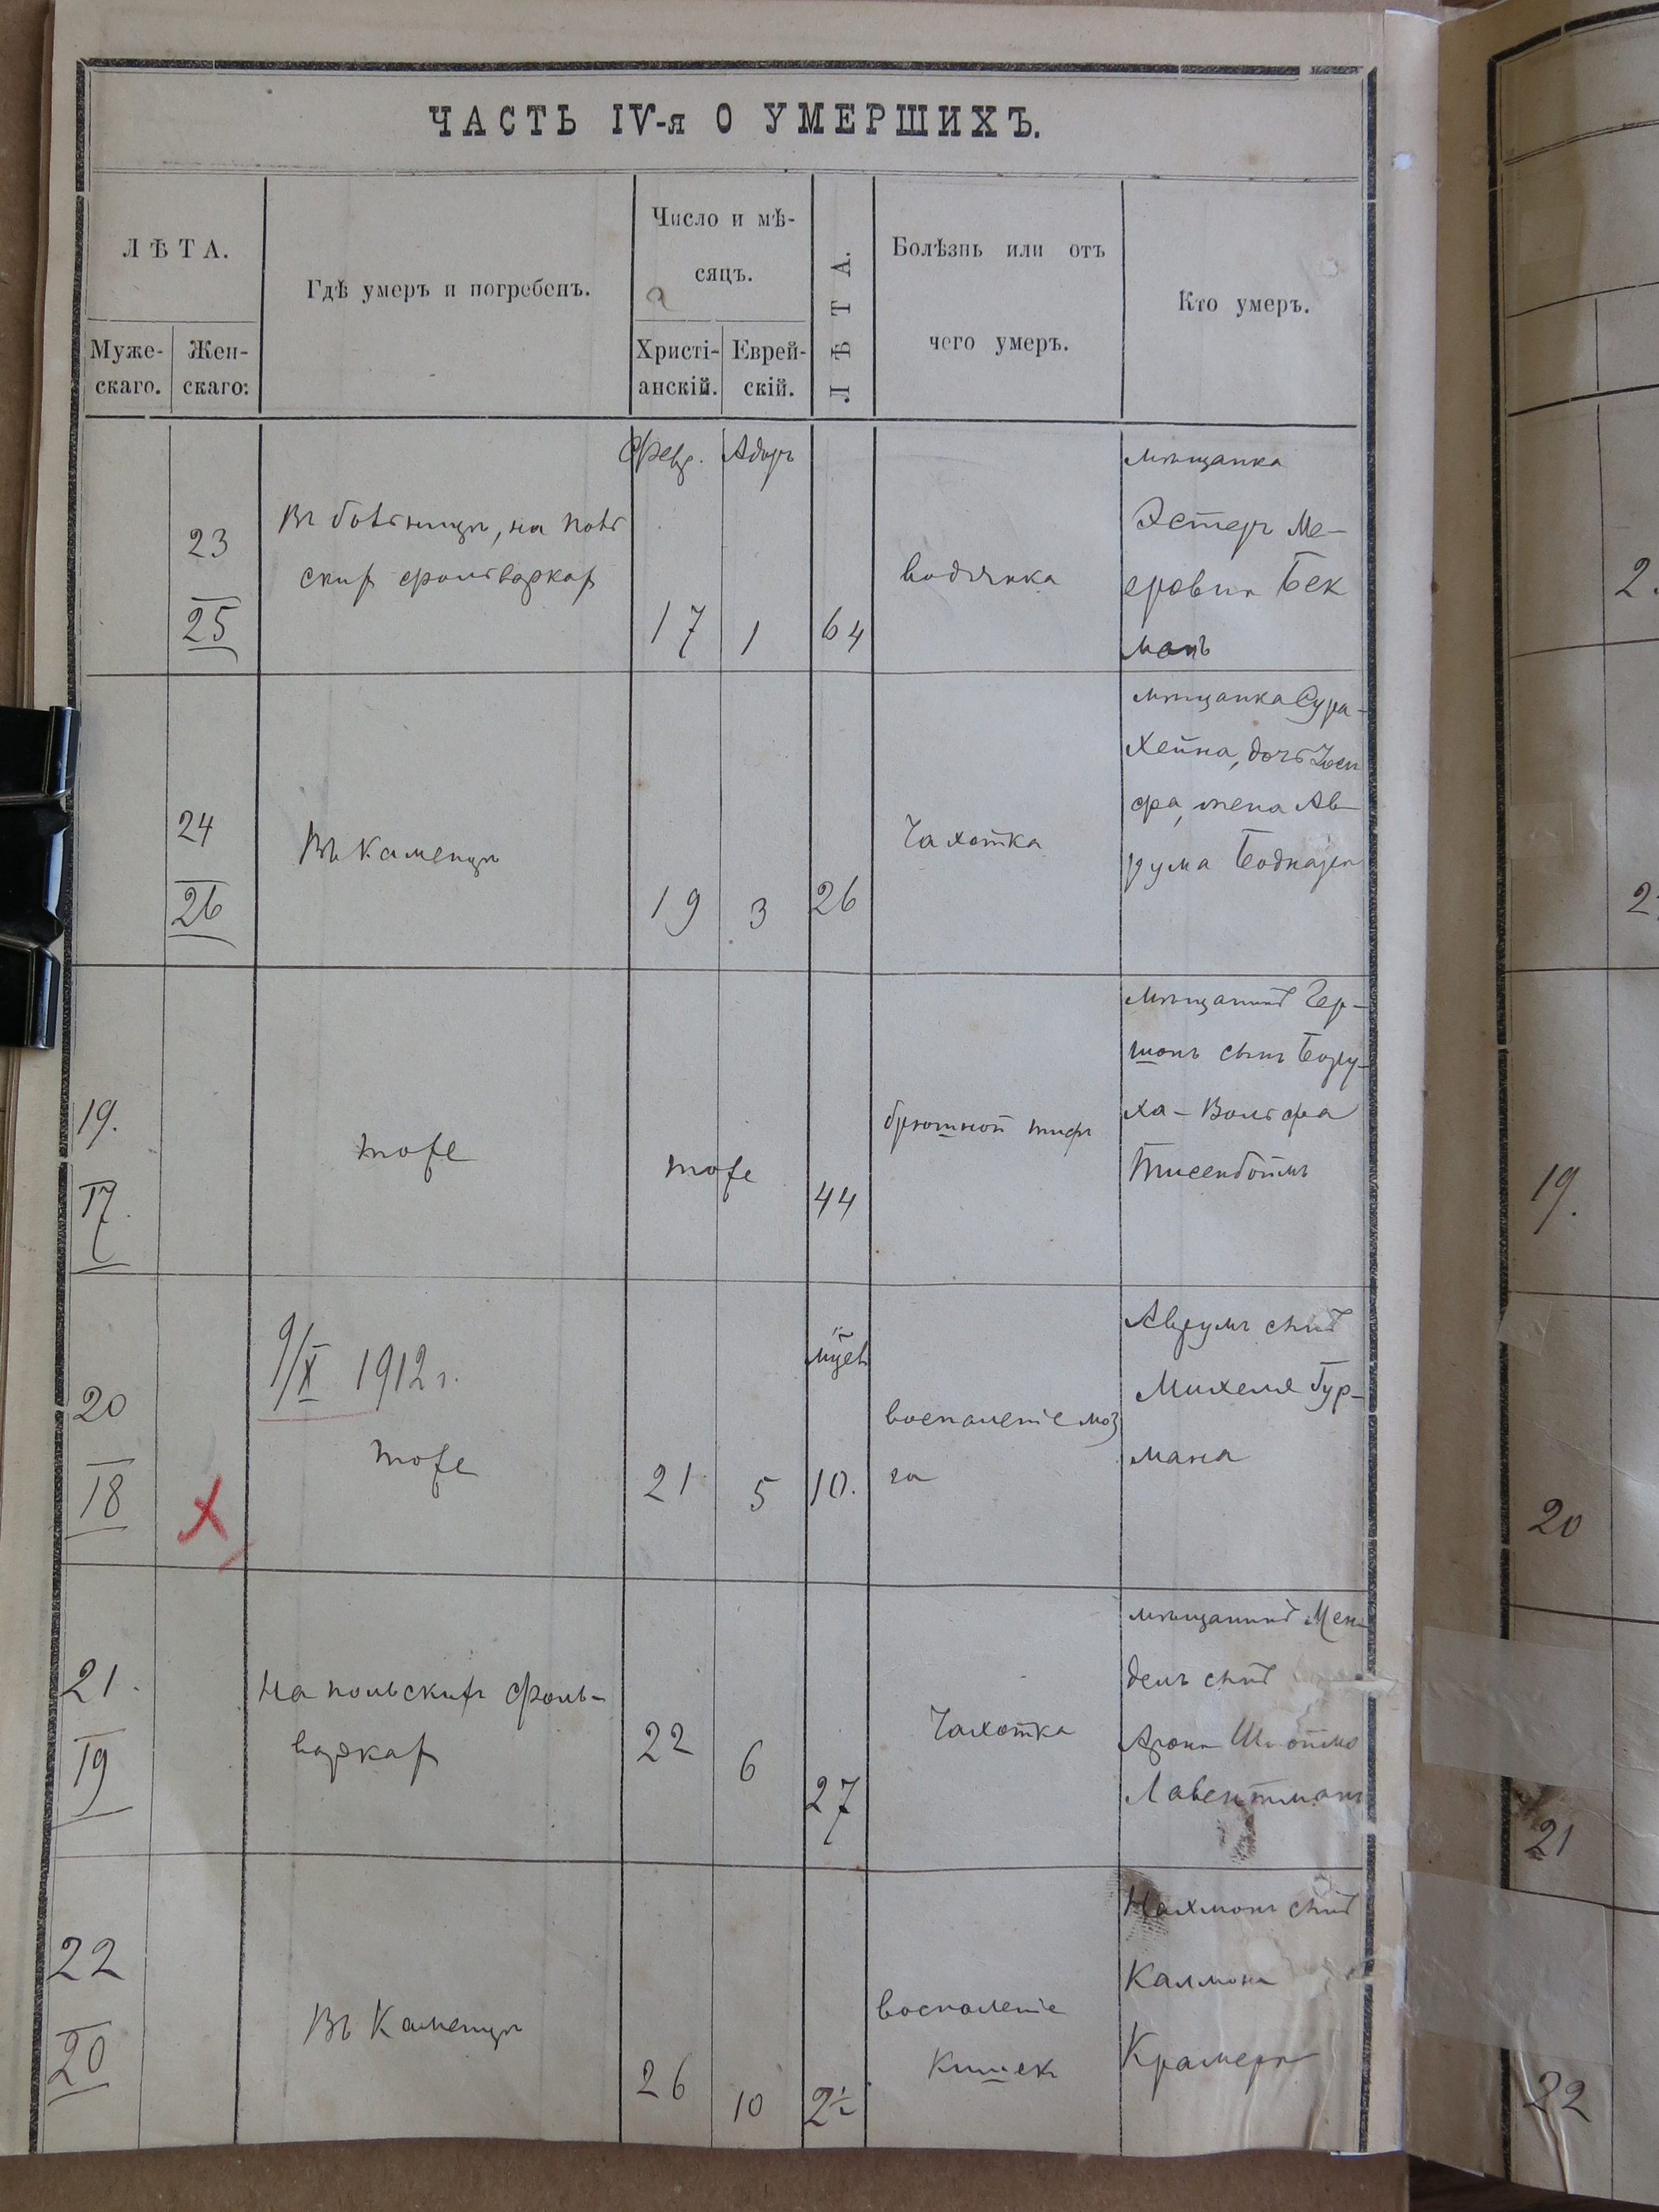 ЧАСТЬ IV-я О УМЕРШИХЪ.
ЛѢТА.
Муже-
скаго.
Жен-
скаго:
Гдѣ умеръ и погребенъ.
Число и мѣ-
сяцъ.
Христі-
анскій.
Еврей-
скій.
ЛѢТА.
Болѣзнь или отъ
чего умеръ.
Кто умеръ.
Февр.
Адаръ
23
25
Въ больницѣ, на поль
скихъ фольваркахъ
17
1
64
водянка
мѣщанка
Эстеръ Ме-
еровна Бек
манъ
24
26
Въ Каменцѣ
19
3
26
Чахотка
мѣщанка Сура-
Хейна, дочь Іоси
фа, жена Ав-
рума
19.
17.
тоже
тоже
44
брюшной тифъ
мѣщанинъ Гер-
шонъ сынъ Бору-
ха-Вольфа
20
18
X
9/X 1912 г.
тоже
21
5
10.
воспаленіе моз
га
Аврумъ сынъ
Михеля Гур-
мана
21.
19
На польскихъ фоль-
варкахъ
22
6
27
Чахотка
мѣщанинъ Мен
дель сынъ
Арона
22
20
Въ Каменцѣ
26
10
2½
воспаленіе
кишекъ
Нахманъ сынъ
Калмана
Крамеръ
2
2
19.
20
21
22